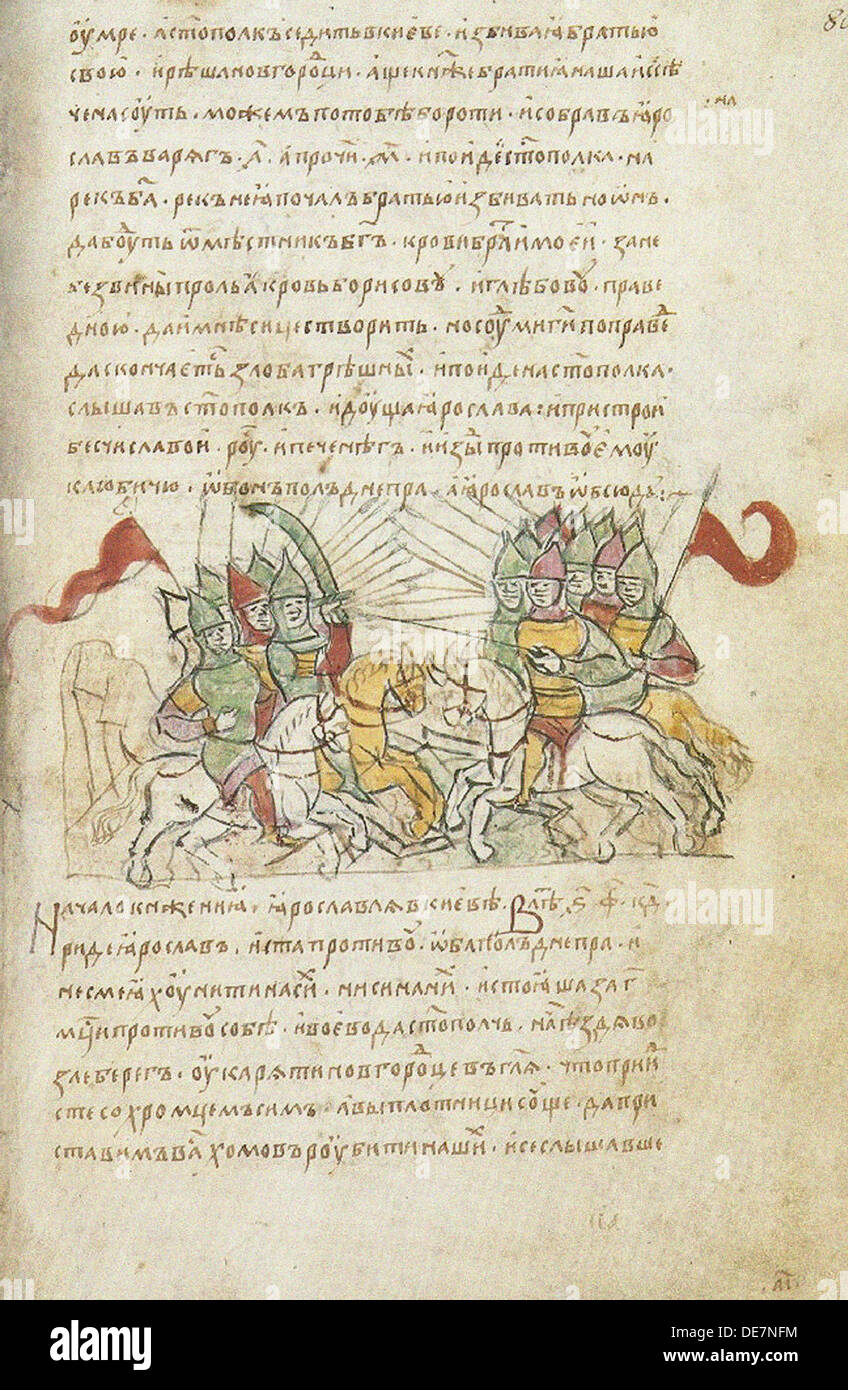 80
оумре · а стополкъ седить в киеве · избиваꙗ братью
свою · и рѣша новгородци · аще кнѧже братиꙗ наша исѣ
чена соуть · можемъ по тобѣ бороти · и собравъ ꙗро
на
славъ варѧгъ · а҃ · а прочи · м҃ · и поиде стополка · на
рекъ ба҃ · рекъ не ꙗ почалъ братью избивать но ѡнъ ·
да боуть ѿмѣстникъ бг҃ъ · крови братиꙗ моеи · зане
без вины прольꙗ кровь борисову · и глѣбову · праве
дною · да и мнѣ сице створить · но соуди ми ги҃ по правдѣ
да скончаетсѧ злоба грѣшны · и поиде на стополка ·
слышавъ стополк · идоуща ꙗрослава : и пристрои
бесчисла вои · роу · и печенѣгъ · и изыд противоу емоу
к любичю · ѡб онъ полъ днепра · а ꙗрославъ ѡб сюду :
Начало кнѧжениꙗ · ꙗрославлѧ в киевѣ · В лѣ҃ · ҂ѕ · ф҃ · кд҃ ·
риде ꙗрослав · и сташа противоу · ѡба полъ днепра · и
не смеꙗхоу ни ти на си · ни си на ни · и стоꙗша за г҃
мци противоу собѣ · и воевода стополчь · нача ѣздѧ во
зле берегъ · оукарѧти новгородце въ глѧ · что приид
сте со хромцемъ симъ · а вы плотници соуще · да при
ставимъ ва хомовъ роубити наши · и се слышавше
alamy
Image ID: DE7NFM
www.alamy.com